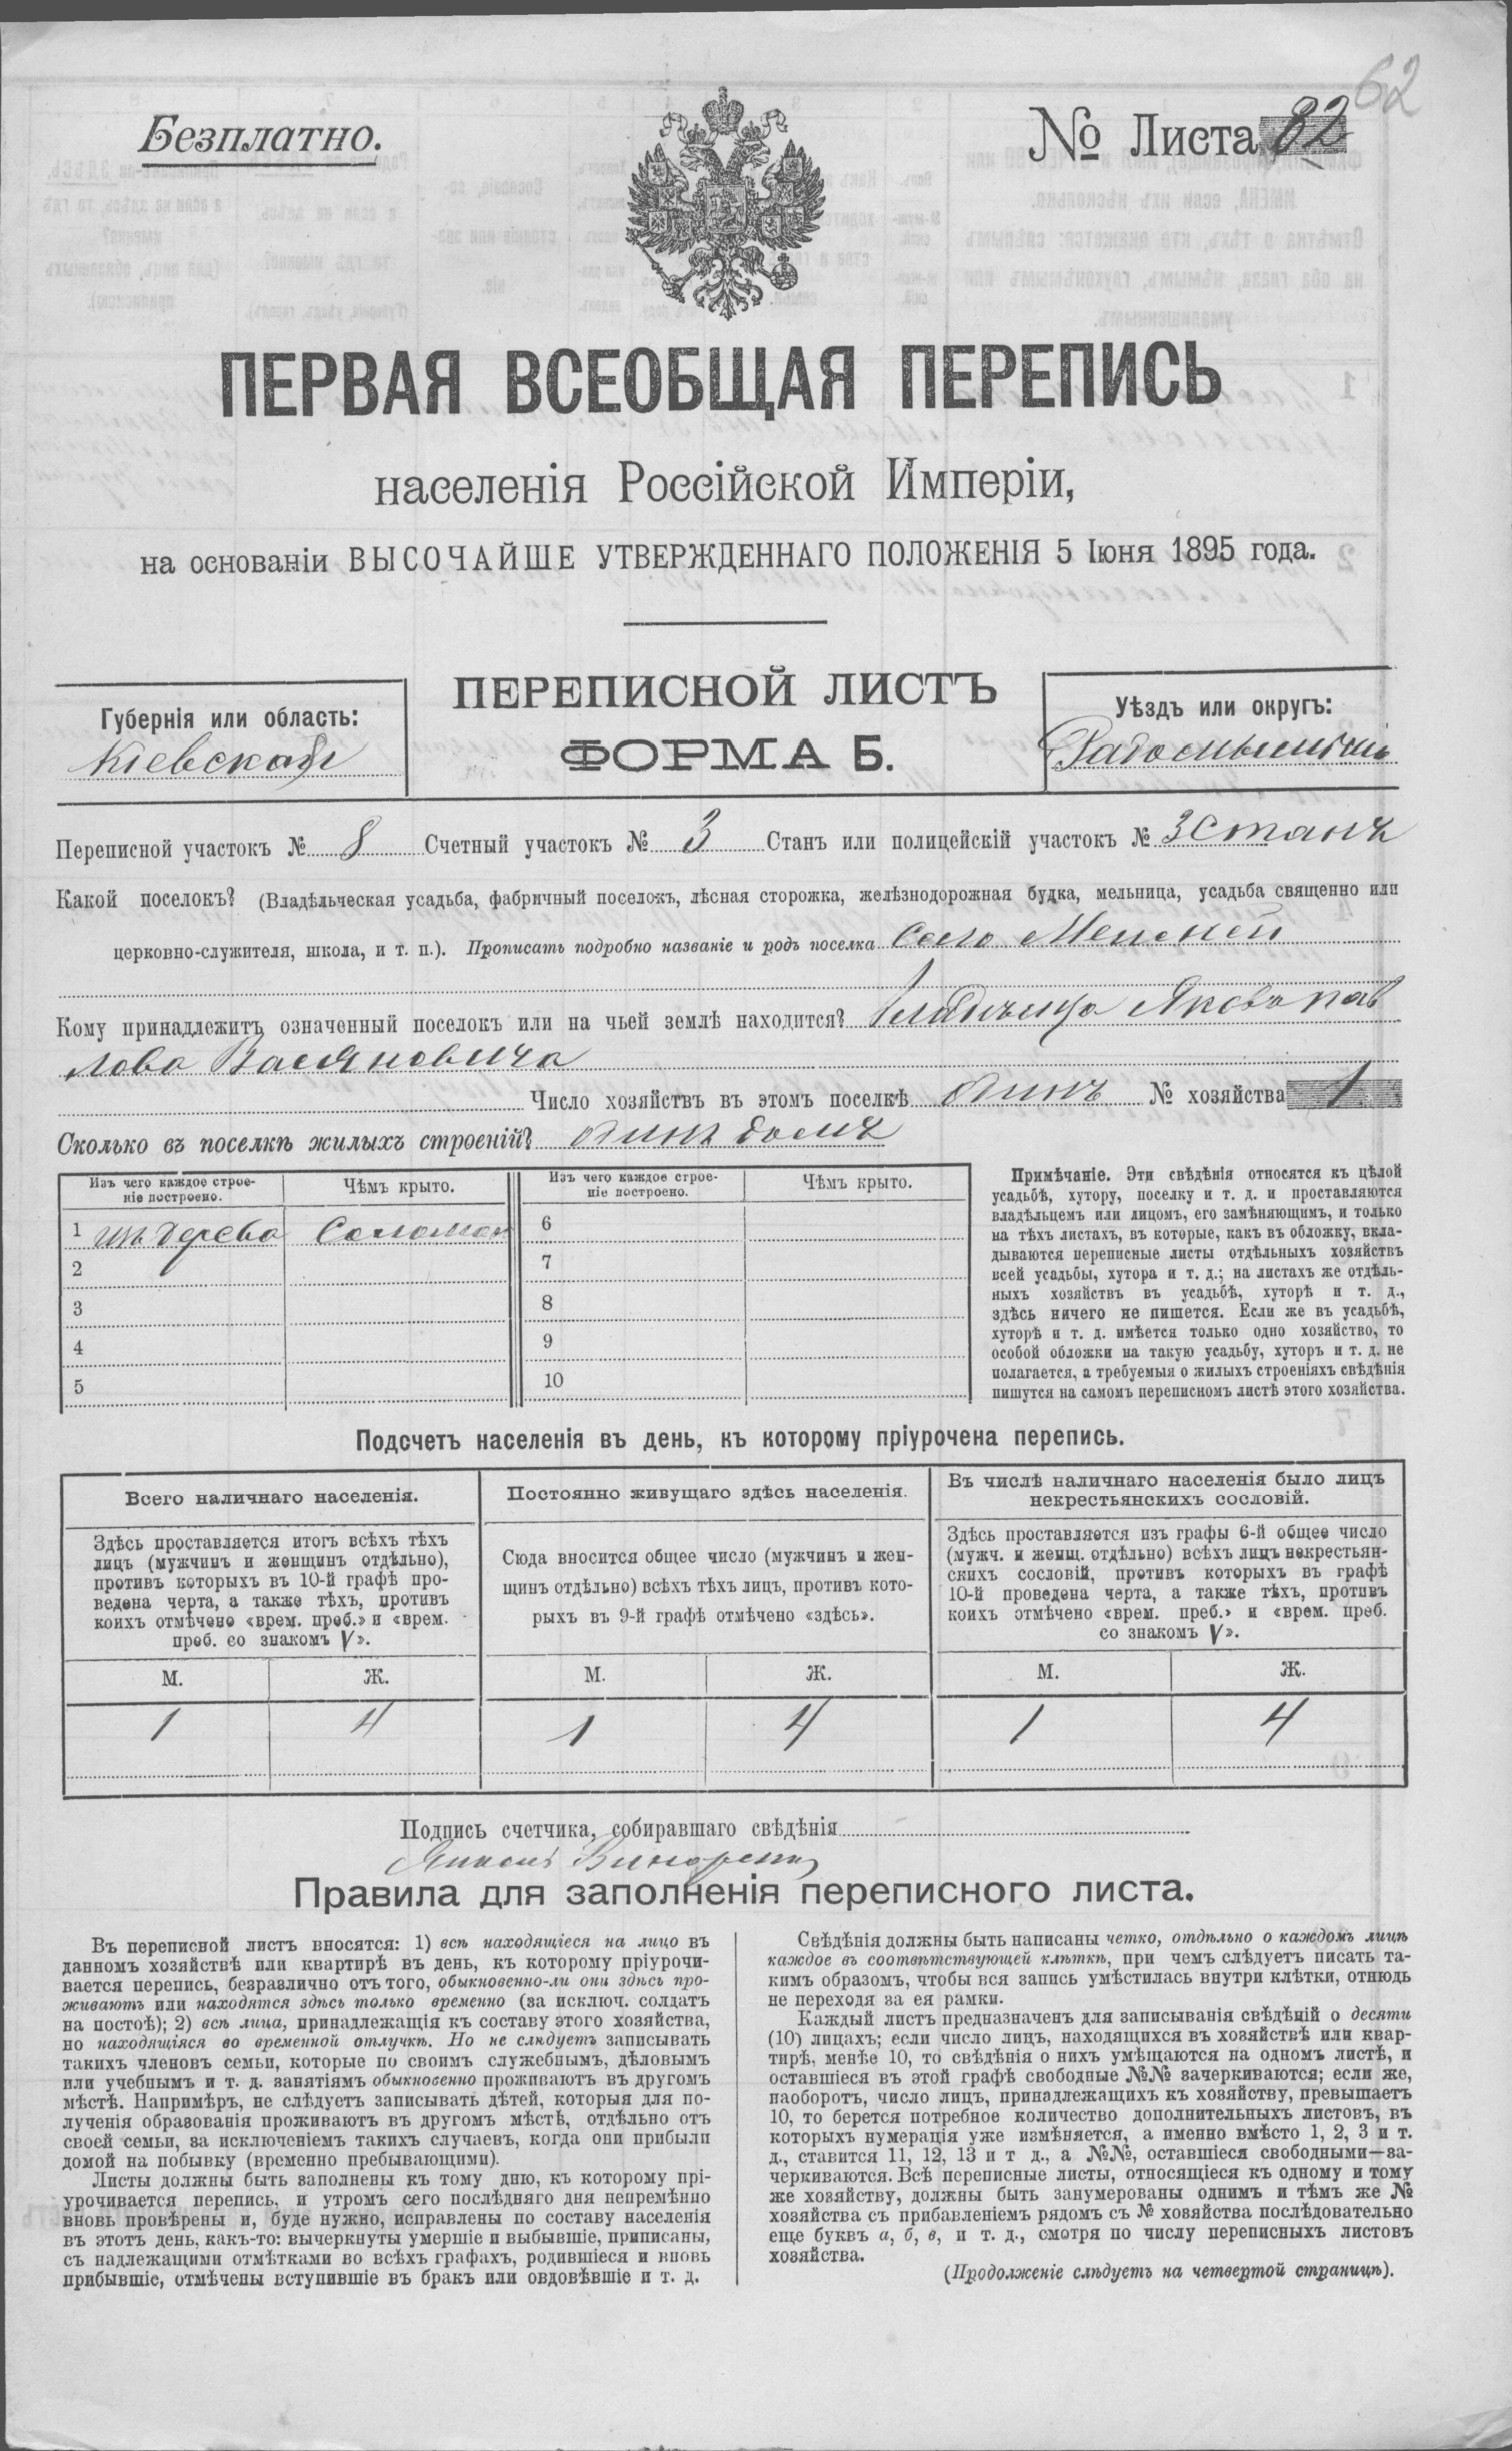 62
Безплатно.
№ Листа 82
ПЕРВАЯ ВСЕОБЩАЯ ПЕРЕПИСЬ
населенія Россійской Имперіи,
на основаніи ВЫСОЧАЙШЕ УТВЕРЖДЕННАГО ПОЛОЖЕНІЯ 5 Іюня 1895 года.
Губернія или область:
Кіевская
ПЕРЕПИСНОЙ ЛИСТЪ
ФОРМА Б.
Уѣздъ или округъ:
Переписной участокъ № 8 Счетный участокъ № 3 Станъ или полицейскій участокъ № 3 Станъ
Какой поселокъ? (Владѣльческая усадьба, фабричный поселокъ, лѣсная сторожка, желѣзнодорожная будка, мельница, усадьба священно или
церковно-служителя, школа, и т. п.). Прописать подробно названіе и родъ поселка Село
Кому принадлежитъ означенный поселокъ или на чьей землѣ находится?
Число хозяйствъ въ этомъ поселкѣ № хозяйства 1
Сколько въ поселкѣ жилыхъ строеній? домъ
Изъ чего каждое строе-
ніе построено.
Чѣмъ крыто.
Изъ чего каждое строе-
ніе построено.
Чѣмъ крыто.
1 дерева 6
2 7
3 8
4 9
5 10
Примѣчаніе. Эти свѣдѣнія относятся къ цѣлой
усадьбѣ, хутору, поселку и т. д. и проставляются
владѣльцемъ или лицомъ, его замѣняющимъ, и только
на тѣхъ листахъ, въ которые, какъ въ обложку, вкла-
дываются переписные листы отдѣльныхъ хозяйствъ
всей усадьбы, хутора и т. д.; на листахъ же отдѣль-
ныхъ хозяйствъ въ усадьбѣ, хуторѣ и т. д.,
здѣсь ничего не пишется. Если же въ усадьбѣ,
хуторѣ и т. д. имѣется только одно хозяйство, то
особой обложки на такую усадьбу, хуторъ и т. д. не
полагается, а требуемыя о жилыхъ строеніяхъ свѣдѣнія
пишутся на самомъ переписномъ листѣ этого хозяйства.
Подсчетъ населенія въ день, къ которому пріурочена перепись.
Всего наличнаго населенія.
Здѣсь проставляется итогъ всѣхъ тѣхъ
лицъ (мужчинъ и женщинъ отдѣльно),
противъ которыхъ въ 10-й графѣ про-
ведена черта, а также тѣхъ, противъ
коихъ отмѣчено «врем. преб.» и «врем.
преб. со знакомъ V».
М. Ж.
1 4
Постоянно живущаго здѣсь населенія.
Сюда вносится общее число (мужчинъ и жен-
щинъ отдѣльно) всѣхъ тѣхъ лицъ, противъ кото-
рыхъ въ 9-й графѣ отмѣчено «здѣсь».
М. Ж.
1 4
Въ числѣ наличнаго населенія было лицъ
некрестьянскихъ сословій.
Здѣсь проставляется изъ графы 6-й общее число
(мужч. и женщ. отдѣльно) всѣхъ лицъ некрестьян-
скихъ сословій, противъ которыхъ въ графѣ
10-й проведена черта, а также тѣхъ, противъ
коихъ отмѣчено «врем. преб.» и «врем. преб.
со знакомъ V».
М. Ж.
1 4
Подпись счетчика, собиравшаго свѣдѣнія
Правила для заполненія переписного листа.
Въ переписной листъ вносятся: 1) всѣ находящіеся на лицо въ
данномъ хозяйствѣ или квартирѣ въ день, къ которому пріурочи-
вается перепись, безразлично отъ того, обыкновенно-ли они здѣсь про-
живаютъ или находятся здѣсь только временно (за исключ. солдатъ
на постоѣ); 2) всѣ лица, принадлежащія къ составу этого хозяйства,
но находящіяся во временной отлучкѣ. Но не слѣдуетъ записывать
такихъ членовъ семьи, которые по своимъ служебнымъ, дѣловымъ
или учебнымъ и т. д. занятіямъ обыкновенно проживаютъ въ другомъ
мѣстѣ. Напримѣръ, не слѣдуетъ записывать дѣтей, которыя для по-
лученія образованія проживаютъ въ другомъ мѣстѣ, отдѣльно отъ
своей семьи, за исключеніемъ такихъ случаевъ, когда они прибыли
домой на побывку (временно пребывающими).
Листы должны быть заполнены къ тому дню, къ которому прі-
урочивается перепись, и утромъ сего послѣдняго дня непремѣнно
вновь провѣрены и, буде нужно, исправлены по составу населенія
въ этотъ день, какъ-то: вычеркнуты умершіе и выбывшіе, приписаны,
съ надлежащими отмѣтками во всѣхъ графахъ, родившіеся и вновь
прибывшіе, отмѣчены вступившіе въ бракъ или овдовѣвшіе и т. д.
Свѣдѣнія должны быть написаны четко, отдѣльно о каждомъ лицѣ
каждое въ соотвѣтствующей клѣткѣ, при чемъ слѣдуетъ писать та-
кимъ образомъ, чтобы вся запись умѣстилась внутри клѣтки, отнюдь
не переходя за ея рамки.
Каждый листъ предназначенъ для записыванія свѣдѣній о десяти
(10) лицахъ; если число лицъ, находящихся въ хозяйствѣ или квар-
тирѣ, менѣе 10, то свѣдѣнія о нихъ умѣщаются на одномъ листѣ, и
оставшіеся въ этой графѣ свободные №№ зачеркиваются; если же,
наоборотъ, число лицъ, принадлежащихъ къ хозяйству, превышаетъ
10, то берется потребное количество дополнительныхъ листовъ, въ
которыхъ нумерація уже измѣняется, а именно вмѣсто 1, 2, 3 и т.
д., ставится 11, 12, 13 и т д., а №№, оставшіеся свободными—за-
черкиваются. Всѣ переписные листы, относящіеся къ одному и тому
же хозяйству, должны быть занумерованы однимъ и тѣмъ же №
хозяйства съ прибавленіемъ рядомъ съ № хозяйства послѣдовательно
еще буквъ а, б, в, и т. д., смотря по числу переписныхъ листовъ
хозяйства.
(Продолженіе слѣдуетъ на четвертой страницѣ).